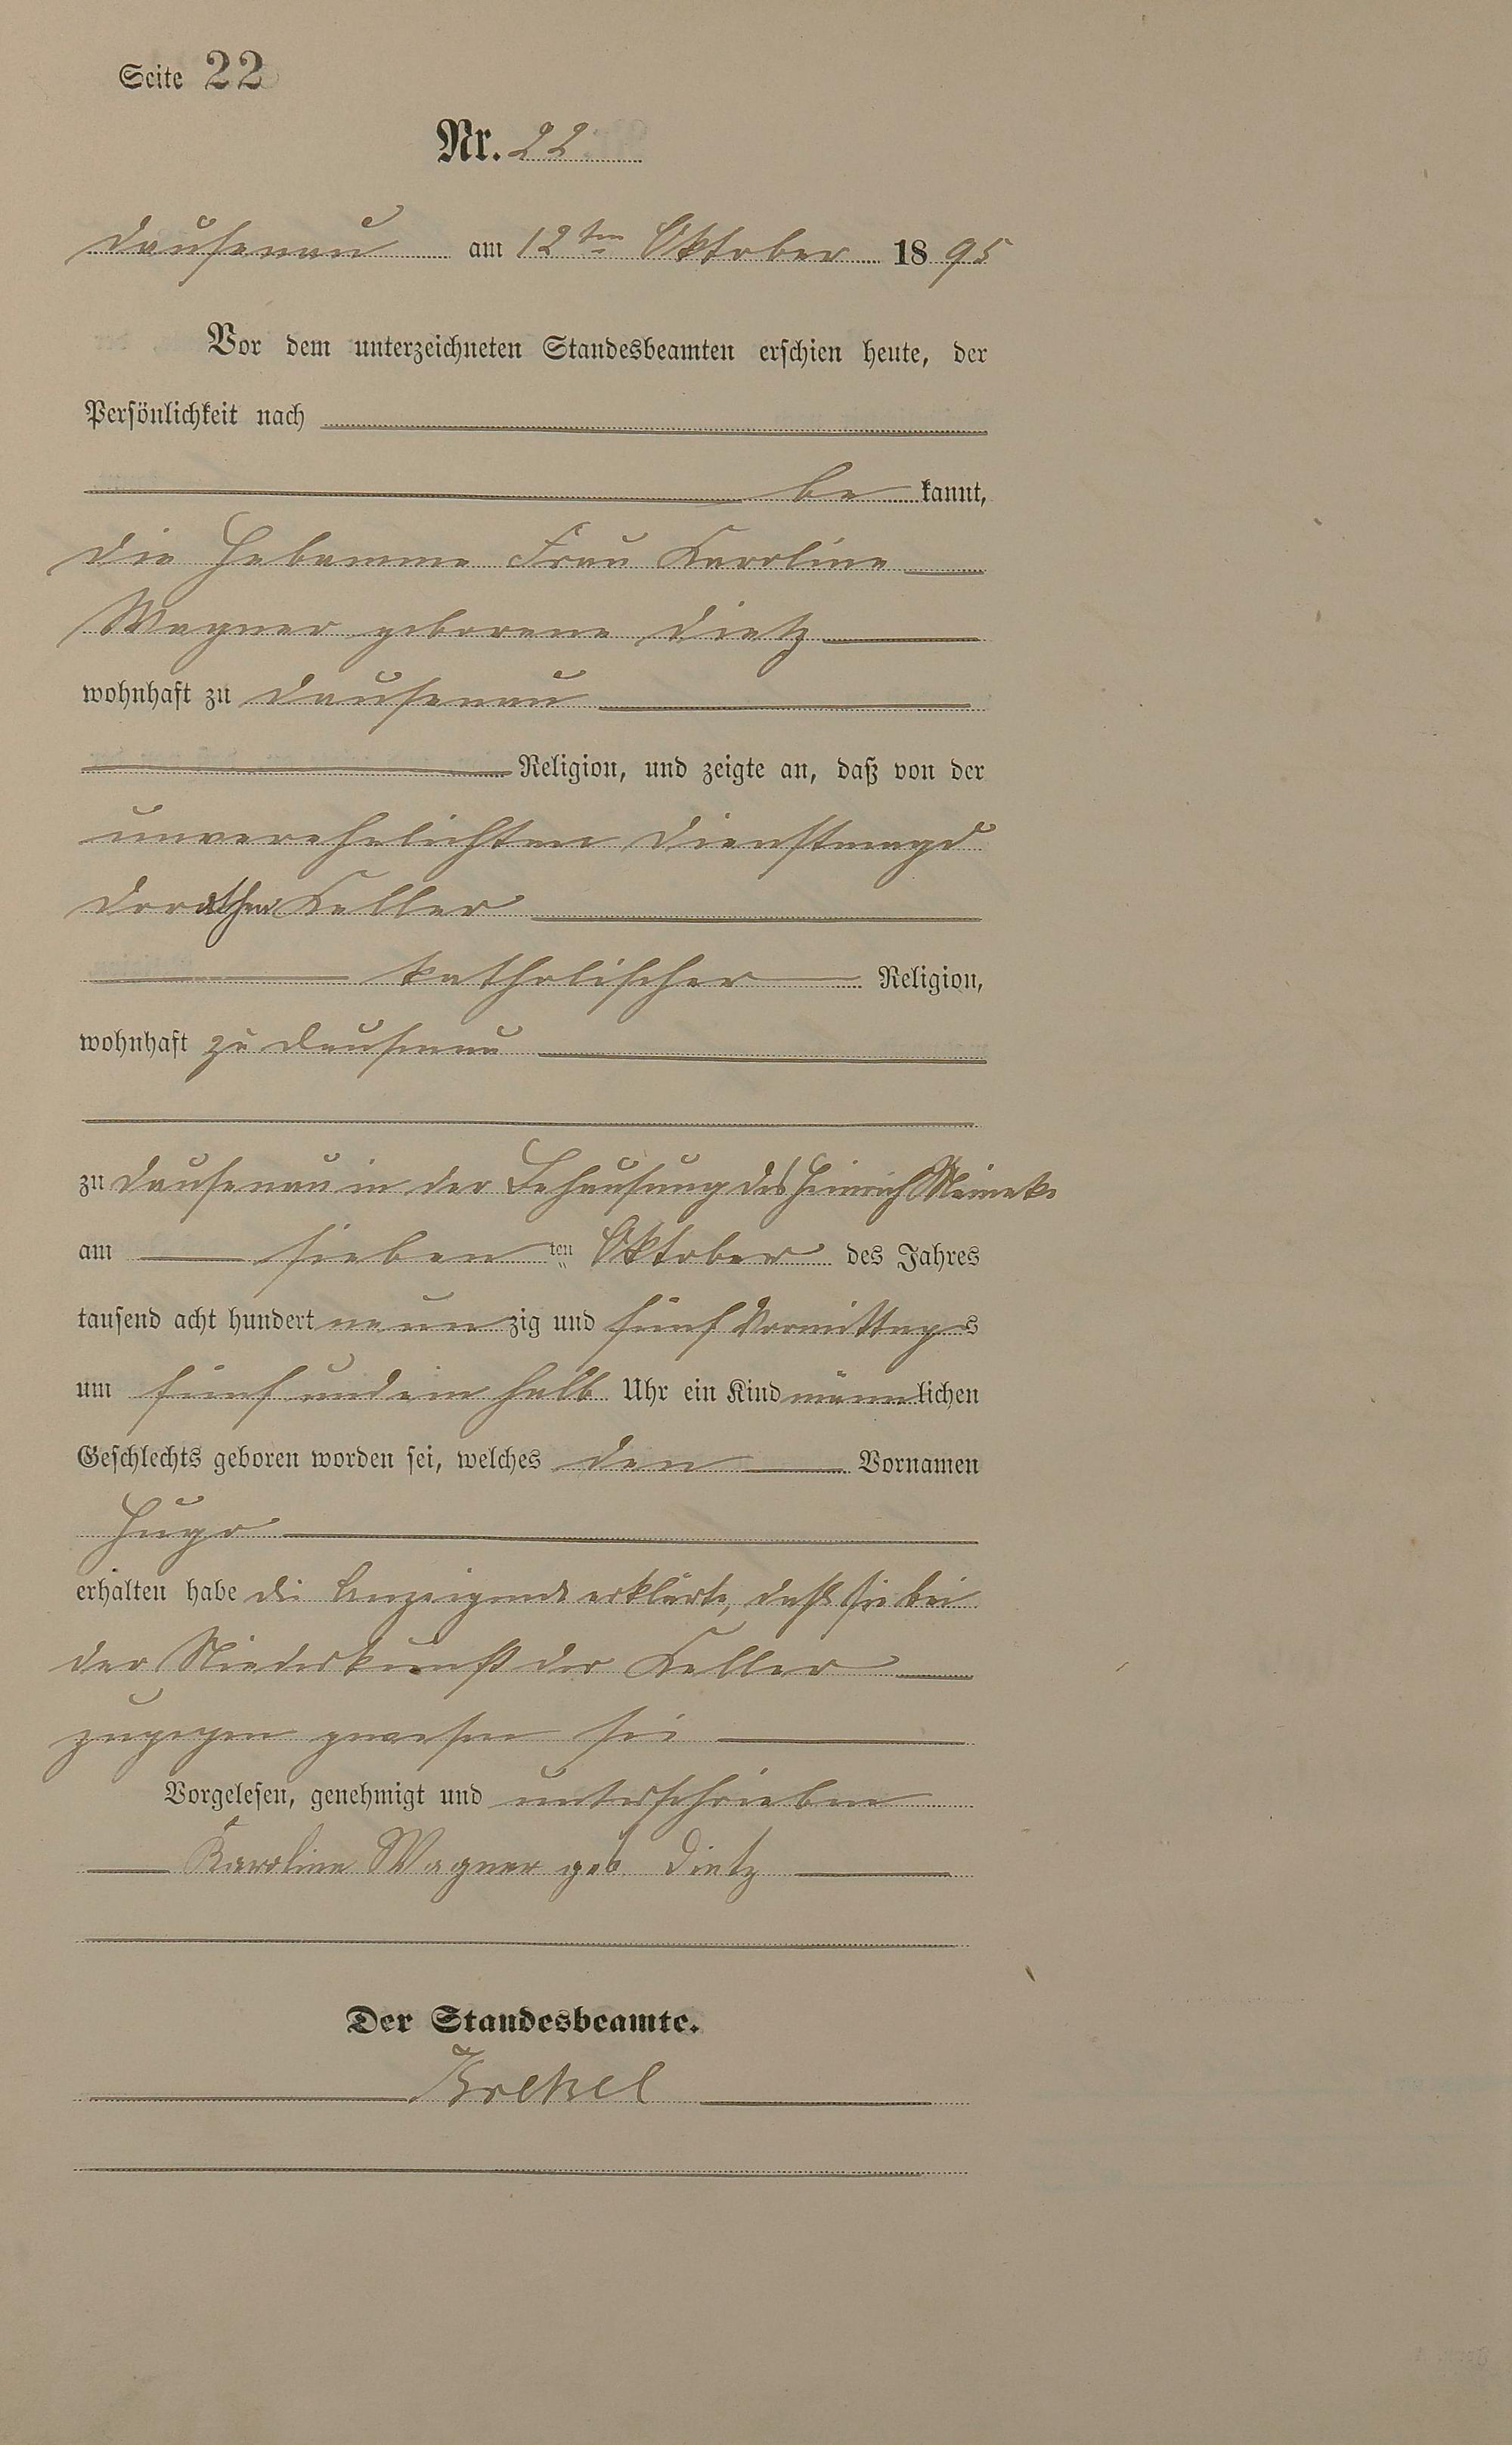 Seite 22
Nr. 22
Dausenau am 12ten Oktober 1895
Vor dem unterzeichneten Standesbeamten erschien heute, der
Persönlichkeit nach
be kannt,
die Hebamme Frau Karoline
Wagner geborene Dietz
wohnhaft zu Dausenau
Religion, und zeigte an, daß von der
unverehelichten Dienstmagd
Dorothea Keller
katholischer Religion,
wohnhaft zu Dausenau
zu Dausenau in der Behausung des Heinrich
am sieben ten Oktober des Jahres
tausend acht hundert neun zig und fünf Vormittags
um fünf und ein halb Uhr ein Kind männlichen
Geschlechts geboren worden sei, welches den Vornamen
Hugo
erhalten habe die Anzeigende erklärte, daß sie bei
der Niederkunft der Keller
zugegen gewesen sei
Vorgelesen, genehmigt und unterschrieben
Karoline Wagner geb. Dietz
Der Standesbeamte.